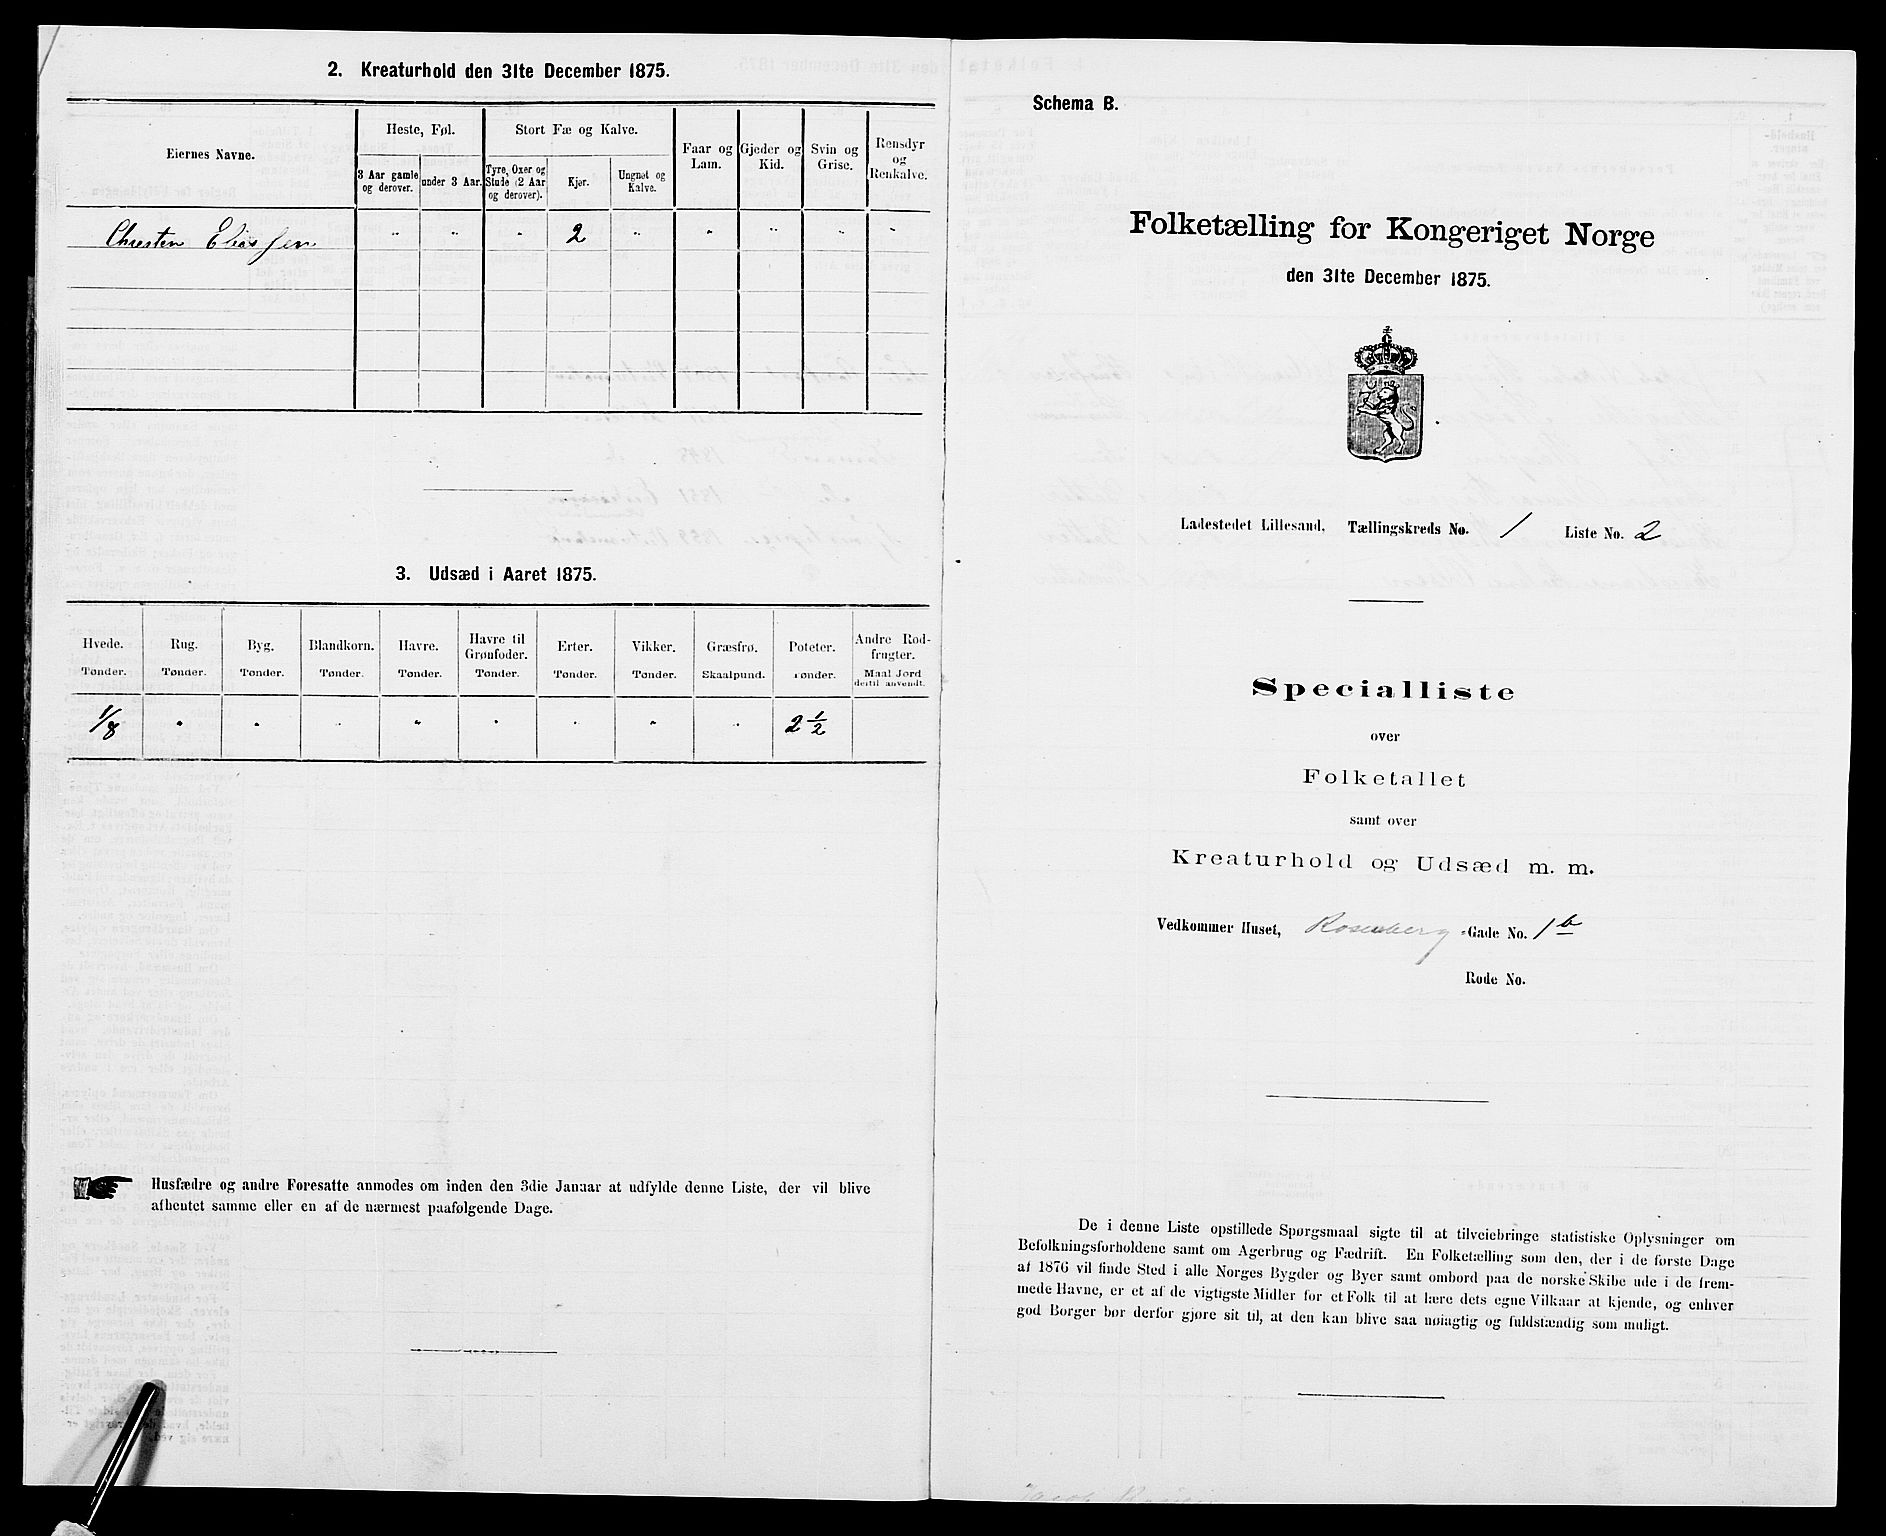 2. Kreaturhold den 31te December 1875.
Eiernes Navne.
Heste, Føl.
Stort Fæ og Kalve.
Faar og Lam.
Gjeder og Kid.
Svin og Grise.
Rensdyr og Renkalve.
3 Aar gamle og derover.
under 3 Aar.
Tyre, Oxer og Stude (2 Aar og derover).
Kjør.
Ungnøt og Kalve.
Chresten Eliassen " " " 2 " " " " "
3. Udsæd i Aaret 1875.
Hvede. Rug. Byg. Blandkorn. Havre. Havre til Grønfoder. Erter. Vikker. Græsfrø. Poteter. Andre Rodfrugter.
Tønder. Tønder. Tønder. Tønder. Tønder. Tønder. Tønder. Tønder. Skaalpund. Tønder. Maal Jord dertil anvendt.
1/8 " " " " " " " " 2 1/2
Husfædre og andre Foresatte anmodes om inden den 3die Januar at udfylde denne Liste, der vil blive
afhentet samme eller en af de nærmest paafølgende Dage.
Schema B.
Folketælling for Kongeriget Norge
den 31te December 1875.
Ladestedet Lillesand. Tællingskreds No. 1 Liste No. 2
Specialliste
over
Folketallet
samt over
Kreaturhold og Udsæd m. m.
Vedkommer Huset, Rosenberg -Gade No. 1 b
Rode No.
De i denne Liste opstillede Spørgsmaal sigte til at tilveiebringe statistiske Oplysninger om
Befolkningsforholdene samt om Agerbrug og Fædrift. En Folketælling som den, der i de første Dage
af 1876 vil finde Sted i alle Norges Bygder og Byer samt ombord paa de norske Skibe ude i de frem-
mede Havne, er et af de vigtigste Midler for et Folk til at lære dets egne Vilkaar at kjende, og enhver
god Borger bør derfor gjøre sit til, at den kan blive saa nøiagtig og fuldstændig som muligt.